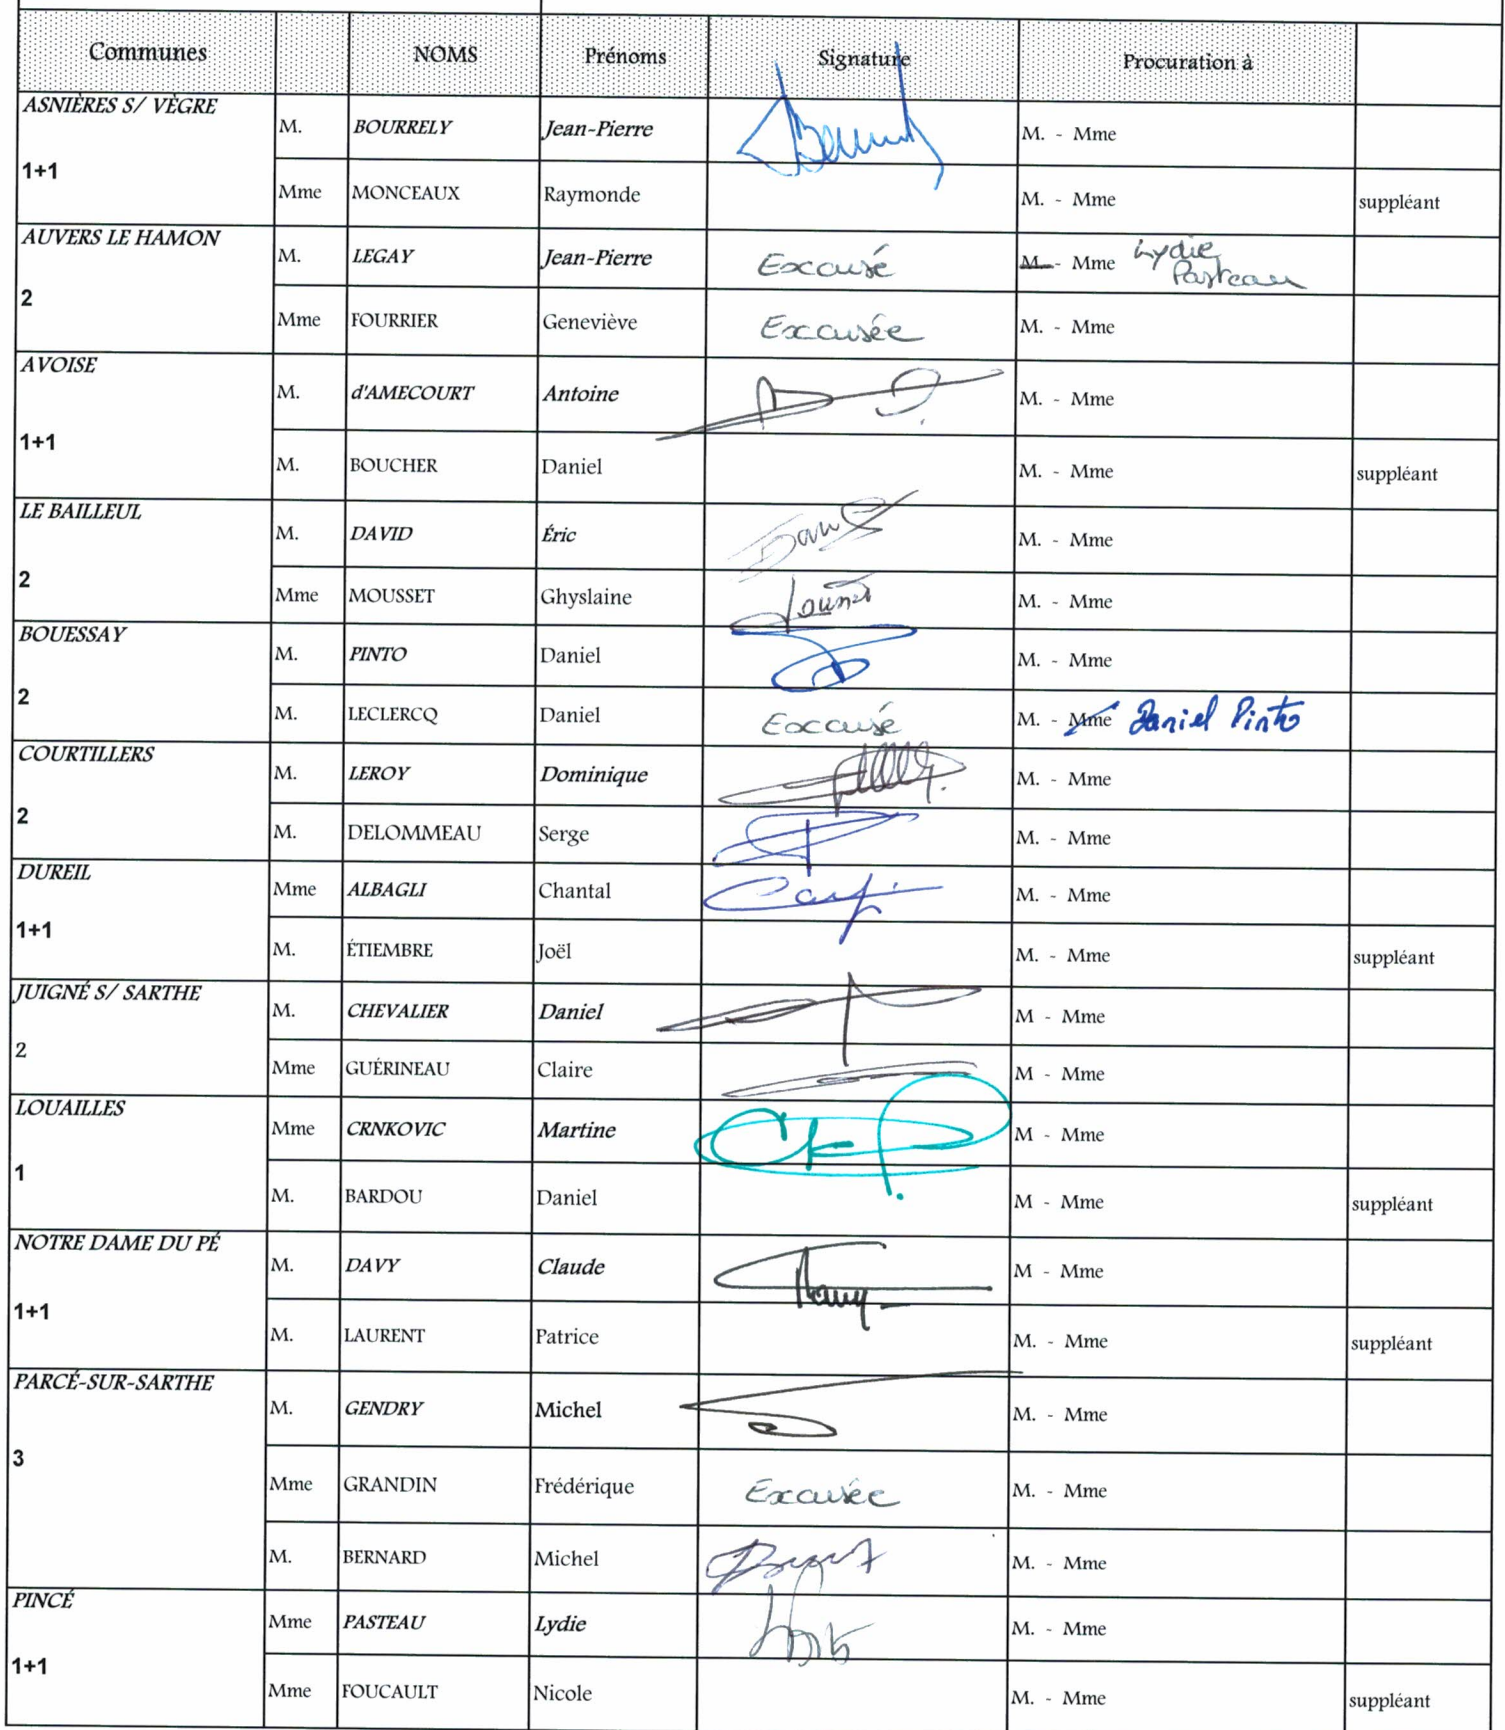 Communes NOMS Prénoms Signature Procuration à
ASNIÈRES S/ VÈGRE
M. BOURRELY Jean-Pierre M. - Mme
1+1
Mme MONCEAUX Raymonde M. - Mme suppléant
AUVERS LE HAMON
M. LEGAY Jean-Pierre Excusé M. - Mme Lydie Pasteau
2
Mme FOURRIER Geneviève Excusée M. - Mme
AVOISE
M. d'AMECOURT Antoine M. - Mme
1+1
M. BOUCHER Daniel M. - Mme suppléant
LE BAILLEUL
M. DAVID Éric M. - Mme
2
Mme MOUSSET Ghyslaine M. - Mme
BOUESSAY
M. PINTO Daniel M. - Mme
2
M. LECLERCQ Daniel Excusé M. - Mme Daniel Pinto
COURTILLERS
M. LEROY Dominique M. - Mme
2
M. DELOMMEAU Serge M. - Mme
DUREIL
Mme ALBAGLI Chantal M. - Mme
1+1
M. ÉTIEMBRE Joël M. - Mme suppléant
JUIGNÉ S/ SARTHE
M. CHEVALIER Daniel M - Mme
2
Mme GUÉRINEAU Claire M - Mme
LOUAILLES
Mme CRNKOVIC Martine M - Mme
1
M. BARDOU Daniel M - Mme suppléant
NOTRE DAME DU PÉ
M. DAVY Claude M - Mme
1+1
M. LAURENT Patrice M. - Mme suppléant
PARCÉ-SUR-SARTHE
M. GENDRY Michel M. - Mme
3
Mme GRANDIN Frédérique Excusée M. - Mme
M. BERNARD Michel M. - Mme
PINCÉ
Mme PASTEAU Lydie M. - Mme
1+1
Mme FOUCAULT Nicole M. - Mme suppléant